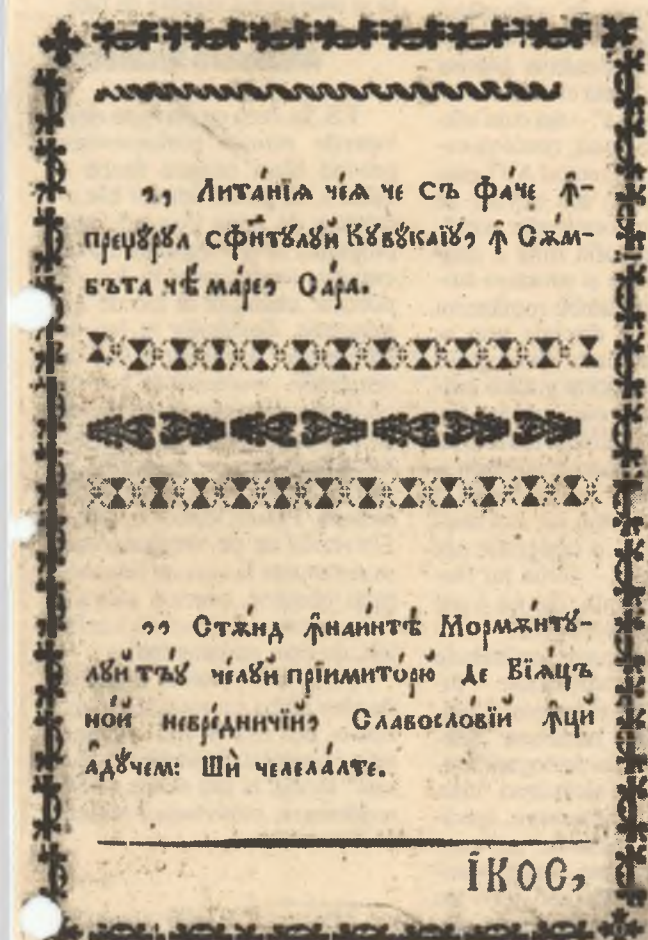 „ Литанїѧ чеѧ че Съ фаче ꙟ-
преџꙋрꙋл Сфинтꙋлꙋй Кꙋвꙋклїꙋ, ꙟ Сѫм-
бъта чѣ маре, Сара.
„ Стѫнд ꙟнаинтѣ Мормѫнтꙋ-
лꙋй тъꙋ челꙋй прїимиторю де Вїѧцъ
ной невредничїй, Славословїй ꙟций
адꙋчем: Шѝ челелалте.
ЇКОС,